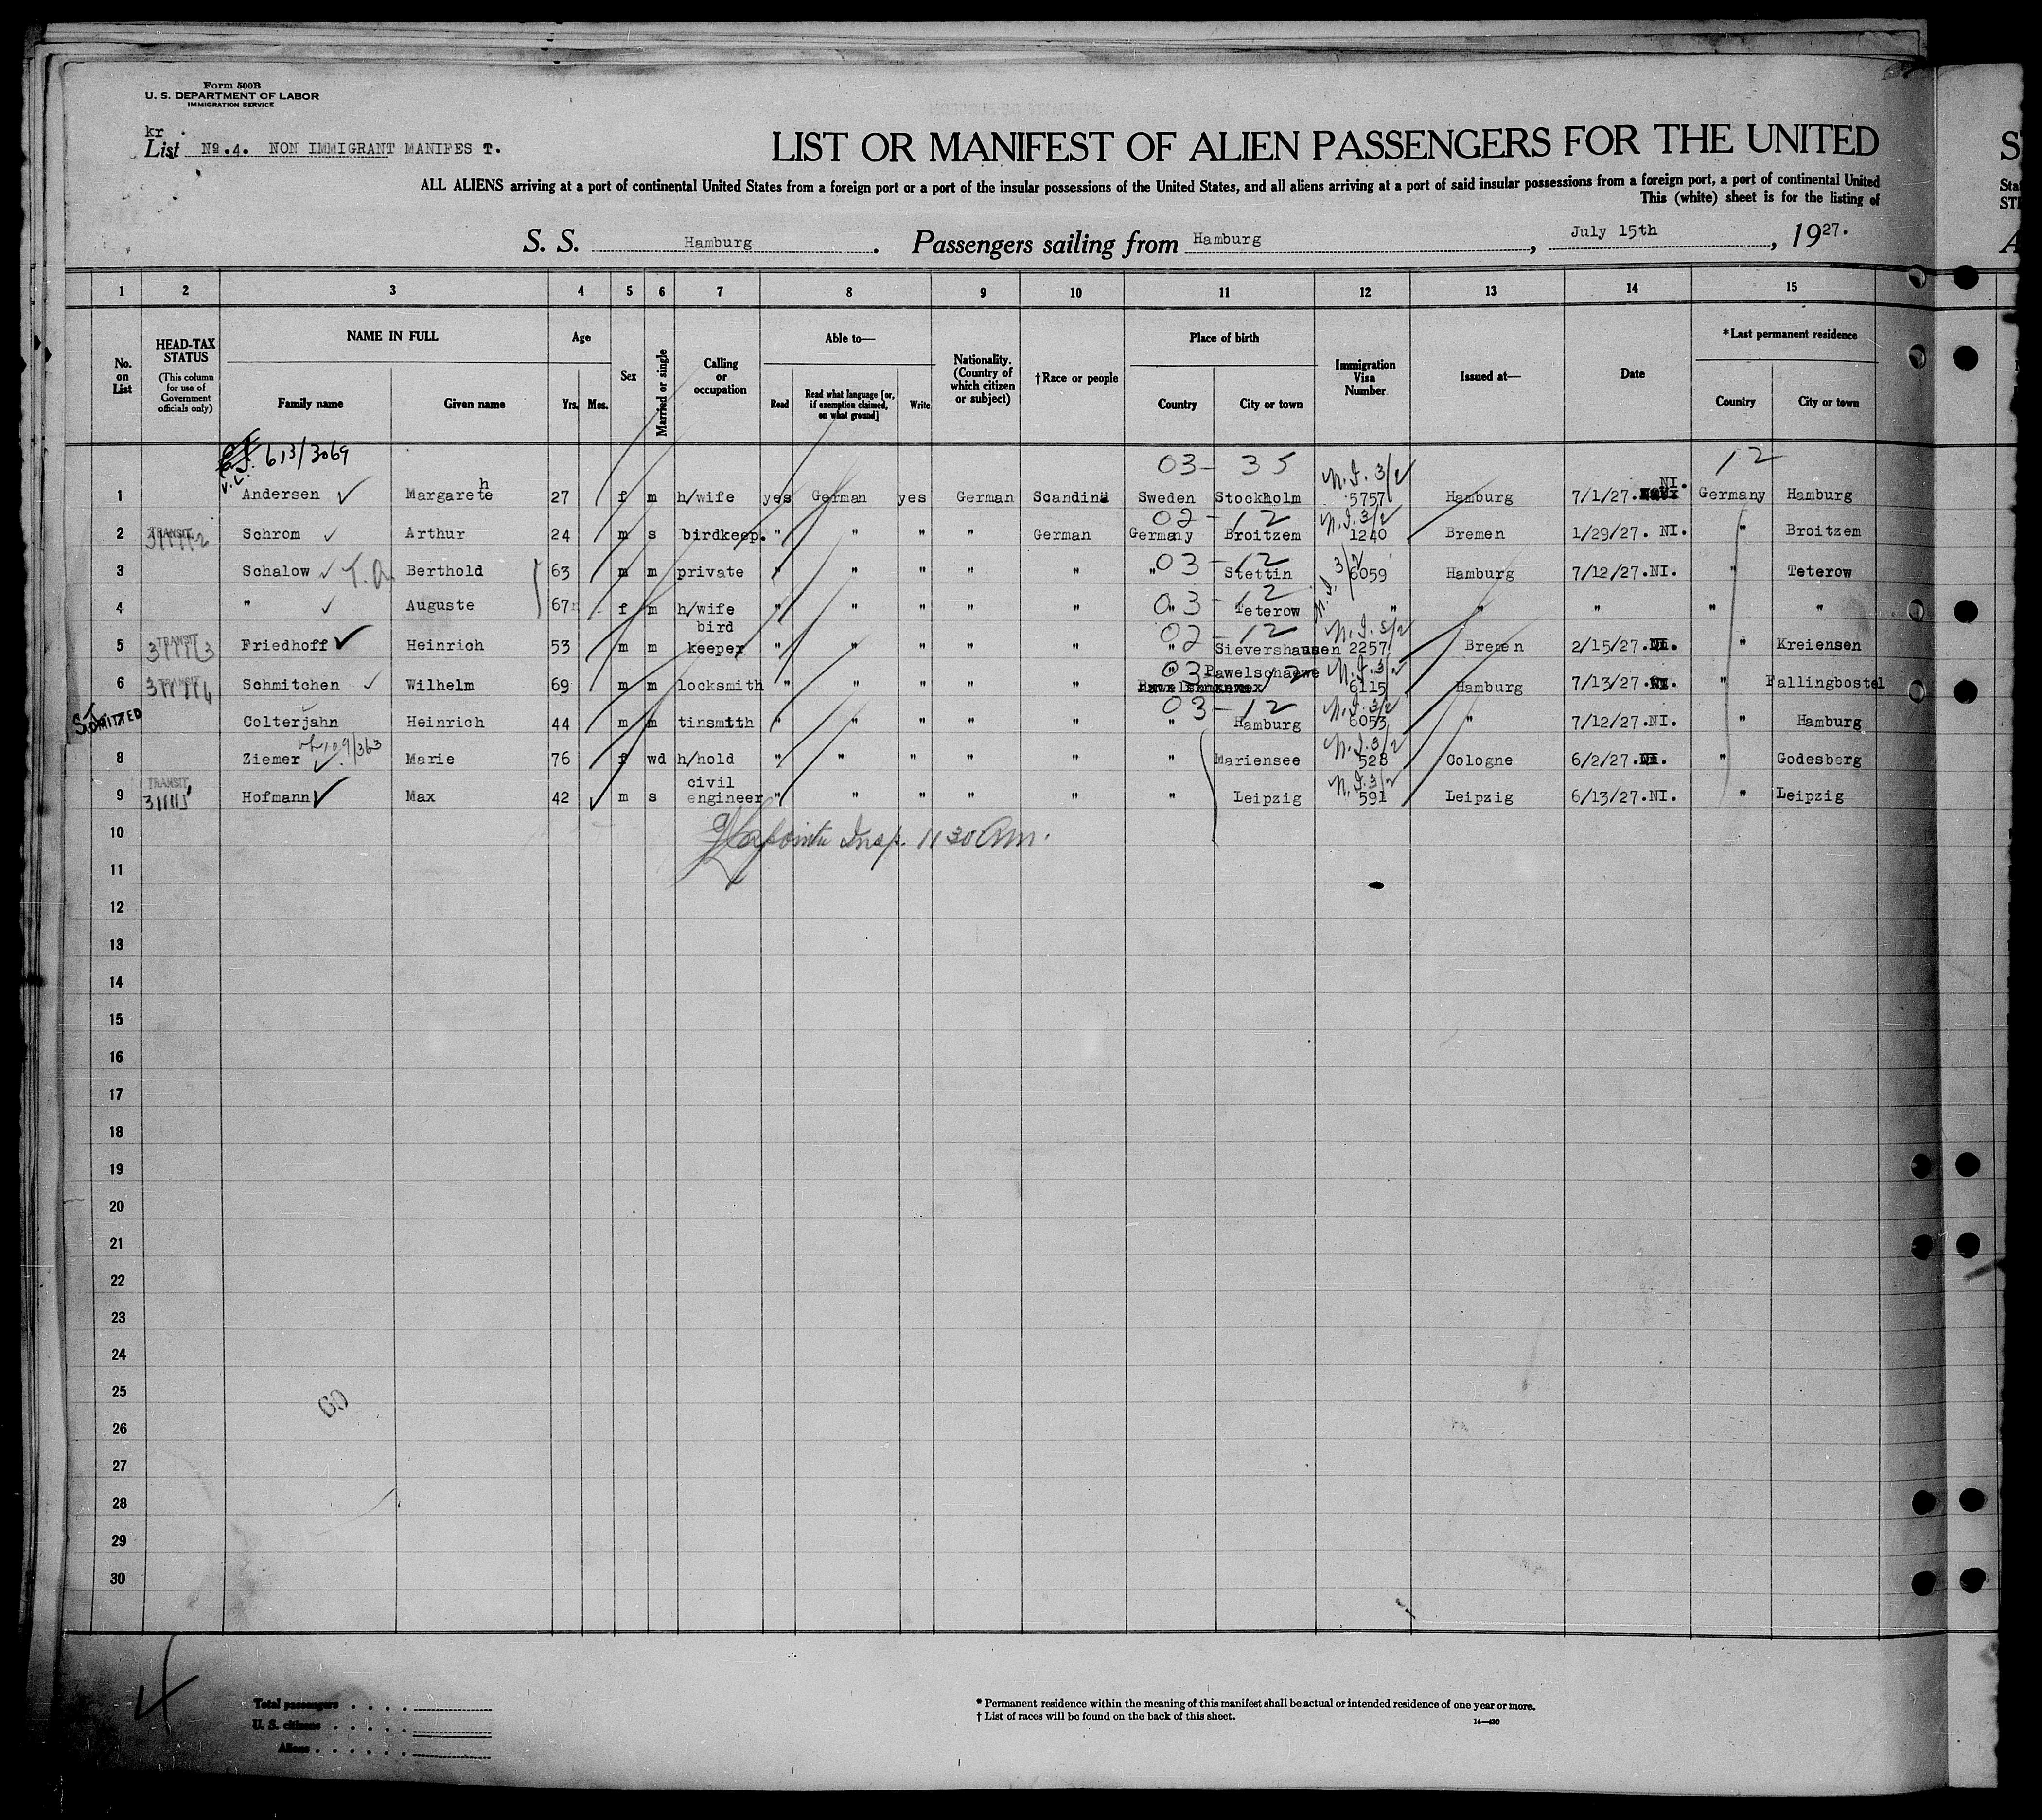 Form 500B
U. S. DEPARTMENT OF LABOR
IMMIGRATION SERVICE
kr
List No.4. NON IMMIGRANT MANIFES T.
LIST OR MANIFEST OF ALIEN PASSENGERS FOR THE UNITED
ALL ALIENS arriving at a port of continental United States from a foreign port or a port of the insular possessions of the United States, and all aliens arriving at a port of said insular possessions from a foreign port, a port of continental United
This (white) sheet is for the listing of
S. S. Hamburg. Passengers sailing from Hamburg, July 15th, 1927.
1 2 3 4 5 6 7 8 9 10 11 12 13 14 15
No. on List
HEAD-TAX STATUS
(This column for use of Government officials only)
NAME IN FULL
Family name Given name
Age
Yrs. Mos.
Sex
Married or single
Calling or occupation
Able to—
Read
Read what language [or, if exemption claimed, on what ground]
Write
Nationality. (Country of which citizen or subject)
†Race or people
Place of birth
Country City or town
Immigration Visa Number
Issued at—
Date
*Last permanent residence
Country City or town
613/3069 03- 35 N.I. 3/2 12
1 Andersen Margarethe 27 f m h/wife yes German yes German Scandina Sweden Stockholm 5757 Hamburg 7/1/27. NI. Germany Hamburg
02-12 N.I. 3/2
2 TRANSIT Schrom Arthur 24 m s birdkeep. " " " " German Germany Broitzem 1240 Bremen 1/29/27. NI. " Broitzem
03-12 N.I. 3/2
3 Schalow T.A. Berthold 63 m m private " " " " " " Stettin 6059 Hamburg 7/12/27.NI. " Teterow
03-12
4 " Auguste 67 f m h/wife " " " " " " Teterow " " " " "
02-12 N.I. 3/2
5 TRANSIT Friedhoff Heinrich 53 m m bird keeper " " " " " " Sievershausen 2257 Bremen 2/15/27. " Kreiensen
03 12 N.I. 3/2
6 TRANSIT Schmitchen Wilhelm 69 m m locksmith " " " " " " Pawelschaewe 6115 Hamburg 7/13/27. " Fallingbostel
03-12 N.I. 3/2
ADMITTED Colterjahn Heinrich 44 m m tinsmith " " " " " " Hamburg 6053 " 7/12/27.NI. " Hamburg
N.I. 3/2
8 Ziemer Marie 76 f wd h/hold " " " " " " Mariensee 528 Cologne 6/2/27. " Godesberg
N.I. 3/2
9 TRANSIT Hofmann Max 42 m s civil engineer " " " " " " Leipzig 591 Leipzig 6/13/27.NI. " Leipzig
10 Insp. 11 30 Am.
11
12
13
14
15
16
17
18
19
20
21
22
23
24
25
26
27
28
29
30
Total passengers
U. S. citizens
Aliens
* Permanent residence within the meaning of this manifest shall be actual or intended residence of one year or more.
† List of races will be found on the back of this sheet.
14—430